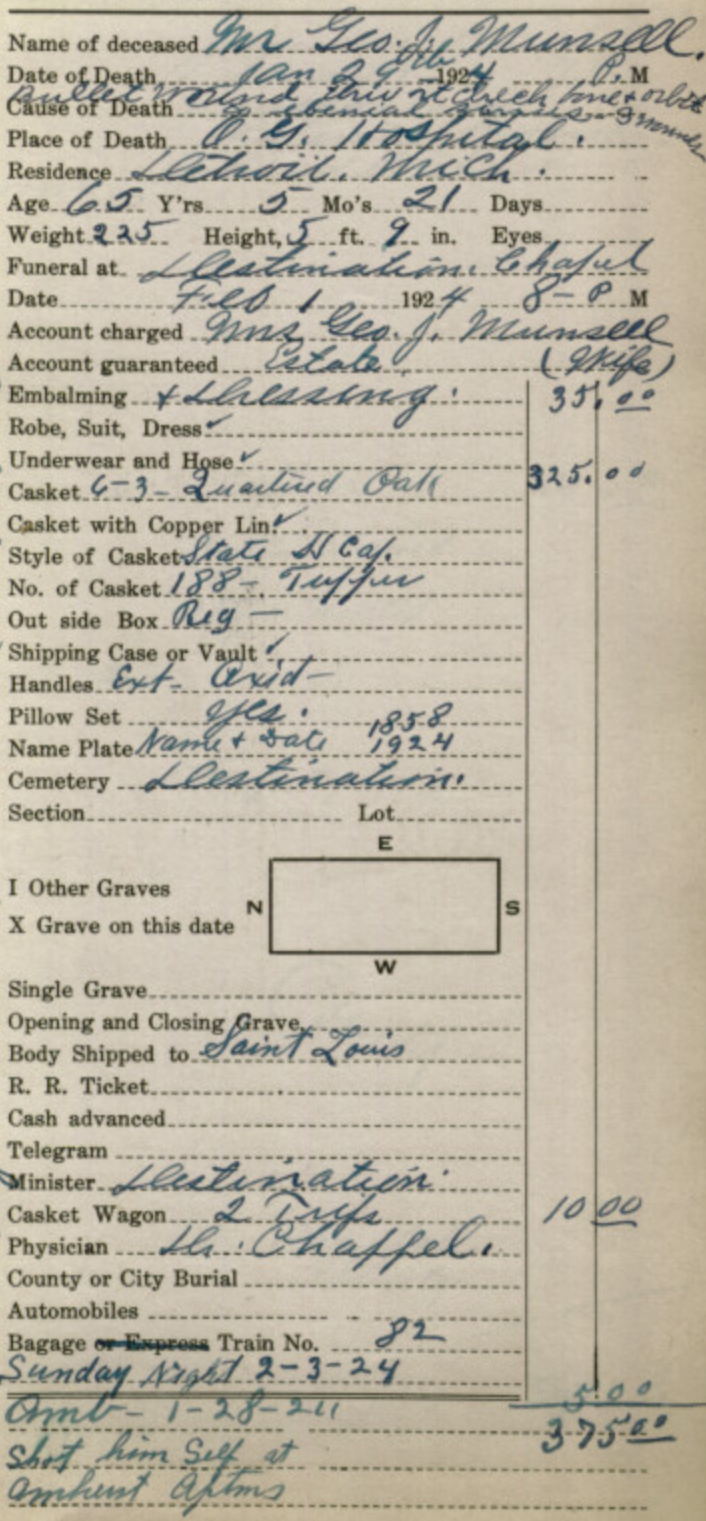 Name of deceased Mr Geo. J. Munsell.
Date of Death Jan 29th 1924 P. M
Bullet Wound thru rt cheek bone & orbit
Cause of Death
Place of Death O. G. Hospital.
Residence Detroit. Mich.
Age 65 Y'rs 5 Mo's 21 Days
Weight 225 Height, 5 ft. 9 in. Eyes
Funeral at Destination. Chapel
Date Feb 1 1924 8- P M
Account charged Mrs Geo. J. Munsell
Account guaranteed Estate (Wife)
Embalming & Dressing. 35.00
Robe, Suit, Dress ✓
Underwear and Hose ✓
Casket 6-3- Quartered Oak 325.00
Casket with Copper Lin. ✓
Style of Casket State H Cap.
No. of Casket 188- Tuffer
Out side Box Reg -
Shipping Case or Vault ✓
Handles Ext- Oxid-
Pillow Set yes. 1858
Name Plate Name & Date 1924
Cemetery Destination.
Section Lot
E
I Other Graves
N S
X Grave on this date
W
Single Grave
Opening and Closing Grave
Body Shipped to Saint Louis
R. R. Ticket
Cash advanced
Telegram
Minister Destination.
Casket Wagon 2 Trips 10 00
Physician Dr. Chappel.
County or City Burial
Automobiles
Bagage or Express Train No. 82
Sunday Night 2-3-24
Amb- 1-28-24 5.00
375.00
Shot him Self at
Amhurst Aptms